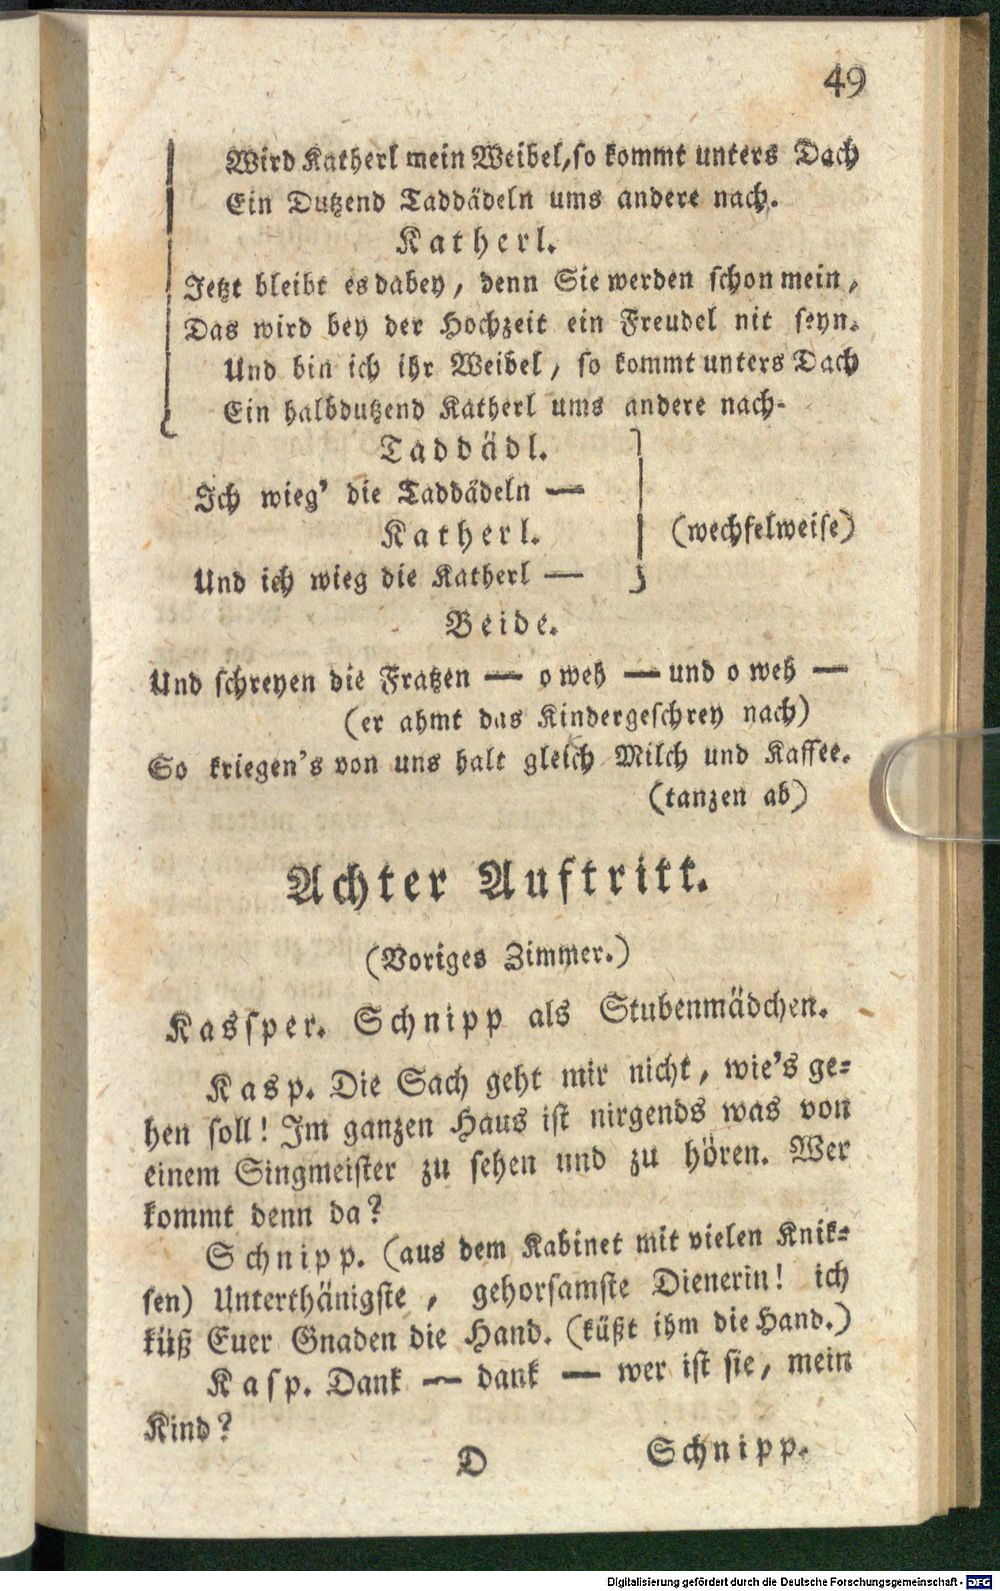 49
Wird Katherl mein Weibel, so kommt unters Dach
Ein Dutzend Taddädeln ums andere nach.
Katherl.
Jetzt bleibt es dabey, denn Sie werden schon mein,
Das wird bey der Hochzeit ein Freudel nit seyn.
Und bin ich ihr Weibel, so kommt unters Dach
Ein halbdutzend Katherl ums andere nach-
Taddädl.
Ich wieg' die Taddädeln —
Katherl.
(wechselweise)
Und ich wieg die Katherl —
Beide.
Und schreyen die Fratzen — o weh — und o weh —
(er ahmt das Kindergeschrey nach)
So kriegen's von uns halt gleich Milch und Kaffee.
(tanzen ab)
Achter Auftritt.
(Voriges Zimmer.)
Kassper. Schnipp als Stubenmädchen.
Kasp. Die Sach geht mir nicht, wie's ge-
hen soll! Im ganzen Haus ist nirgends was von
einem Singmeister zu sehen und zu hören. Wer
kommt denn da?
Schnipp. (aus dem Kabinet mit vielen Knik-
sen) Unterthänigste, gehorsamste Dienerin! ich
küß Euer Gnaden die Hand. (küßt ihm die Hand.)
Kasp. Dank — dank — wer ist sie, mein
Kind?
D
Schnipp.
Digitalisierung gefördert durch die Deutsche Forschungsgemeinschaft - DFG